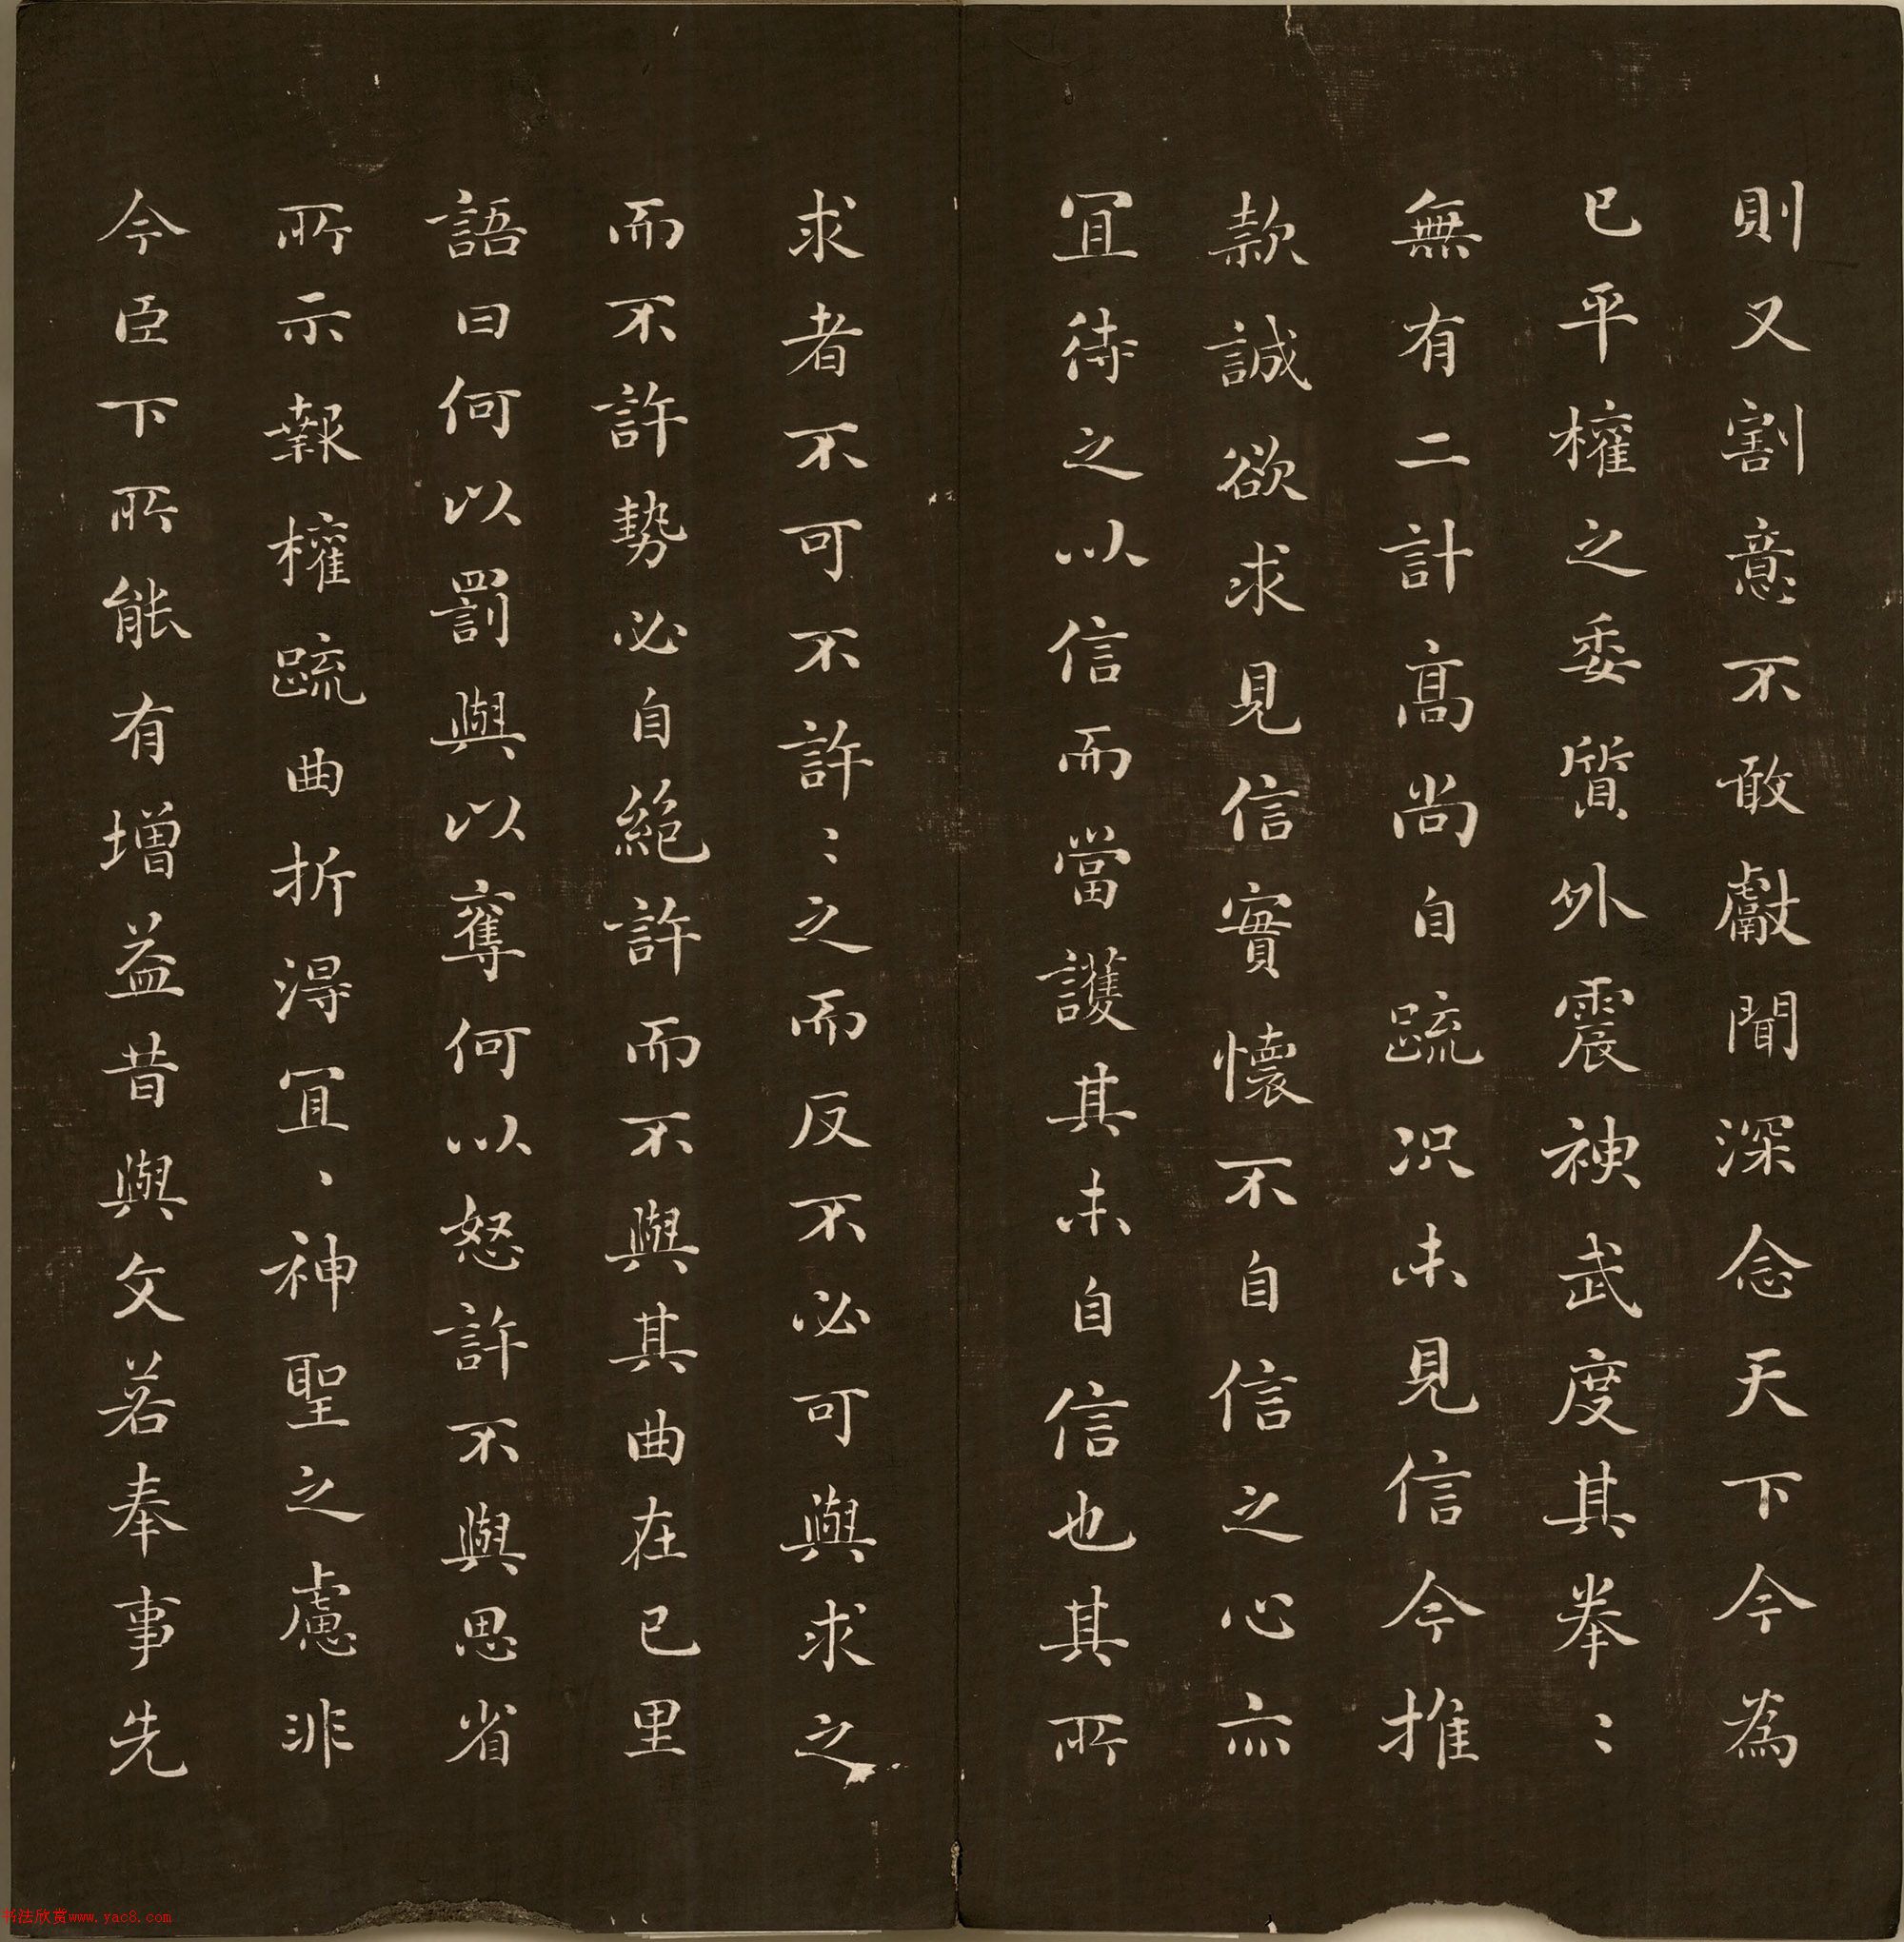 則又割意不敢獻聞深念天下今為
已平權之委質外震神武度其拳〻
無有二計高尚自疏況未見信今推
款誠欲求見信實懷不自信之心亦
冝待之以信而當護其未自信也其所
求者不可不許〻之而反不必可與求之
而不許勢必自絕許而不與其曲在己里
語曰何以罰與以奪何以怒許不與思省
所示報權疏曲折得冝〻神聖之慮非
今臣下所能有增益昔與文若奉事先
书法欣赏www.yac8.com